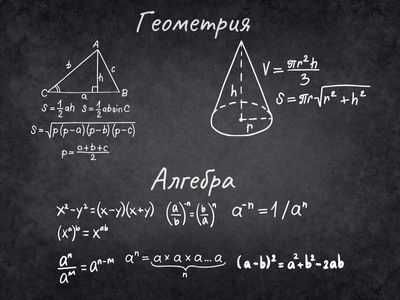 Геометрия
A
b c
h
C a B
S=1/2ah S=1/2absinC
S=√p(p-a)(p-b)(p-c)
p=a+b+c/2
h
r
V=πr²h/3
S=πr√r²+h²
Алгебра
x²-y²=(x-y)(x+y) (a/b)⁻ⁿ=(b/a)ⁿ a⁻ⁿ=1/aⁿ
(xᵃ)ᵇ=xᵃᵇ
aⁿ/aᵐ=aⁿ⁻ᵐ aⁿ=a×a×a...a (a-b)²=a²+b²-2ab
n